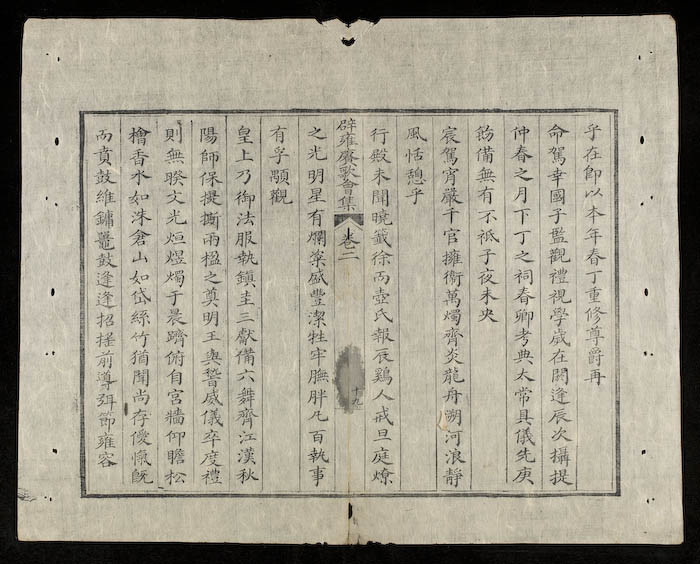 乎在即以本年春丁重修尊爵再
命駕幸國子監觀禮視學歲在閼逢辰次攝提
仲春之月下丁之祠春卿考典太常具儀先庚
飭備無有不祗子夜未央
宸駕宵嚴千官擁衛萬燭齊炎龍舟溯河浪靜
風恬憩乎
行殿未聞曉籤徐丙壺氏報辰鷄人戒旦庭燎
辟雍賡歌會集
卷二
十九
之光明星有爛粢盛豐潔牲牢膴胖凡百執事
有孚顒觀
皇上乃御法服執鎮圭三獻備六舞齊江漢秋
陽師保提撕兩楹之奠明王典誓威儀卒度禮
則無暌文光烜煜燭于晨躋俯自宮牆仰瞻松
檜香水如洙倉山如岱絲竹猶聞尚存僾慨旣
而賁鼓維鏞鼉鼓逢逢招搖前導弭節雍容